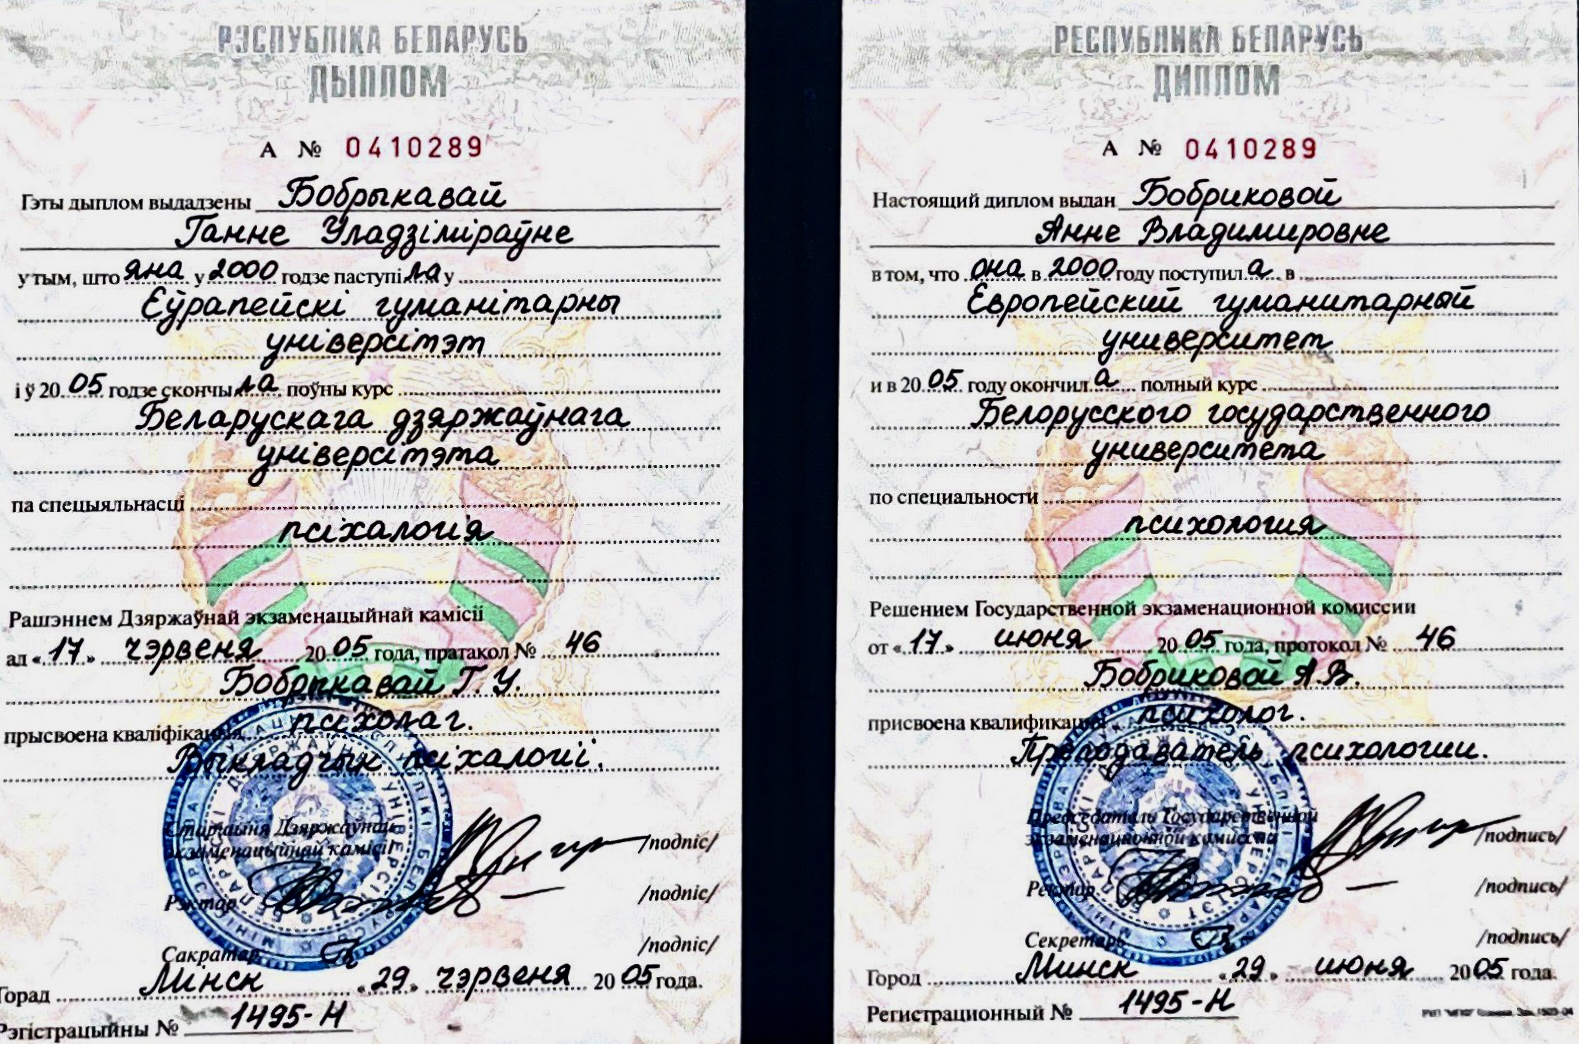 РЭСПУБЛІКА БЕЛАРУСЬ
ДЫПЛОМ
А № 0410289
Гэты дыплом выдадзены Бобрыкавай
Ганне Уладзіміраўне
у тым, што яна у 2000 годзе паступіла у
Еўрапейскі гуманітарны
універсітэт
і ў 2005 годзе скончыла поўны курс
Беларускага дзяржаўнага
універсітэта
па спецыяльнасці
псіхалогія
Рашэннем Дзяржаўнай экзаменацыйнай камісіі
ад «17» чэрвеня 2005 года, пратакол № 46
Бобрыкавай Г. У.
прысвоена кваліфікацыя псіхолаг.
Выкладчык псіхалогіі.
Старшыня Дзяржаўнай
экзаменацыйнай камісіі /подпіс/
Рэктар /подпіс/
Сакратар /подпіс/
Горад Мінск «29» чэрвеня 2005 года.
Рэгістрацыйны № 1495-Н
РЕСПУБЛИКА БЕЛАРУСЬ
ДИПЛОМ
А № 0410289
Настоящий диплом выдан Бобриковой
Анне Владимировне
в том, что она в 2000 году поступила в
Европейский гуманитарный
университет
и в 2005 году окончила полный курс
Белорусского государственного
университета
по специальности
психология
Решением Государственной экзаменационной комиссии
от «17» июня 2005 года, протокол № 46
Бобриковой А.В.
присвоена квалификация психолог.
Преподаватель психологии.
Председатель Государственной
экзаменационной комиссии /подпись/
Ректор /подпись/
Секретарь /подпись/
Город Минск «29» июня 2005 года.
Регистрационный № 1495-Н